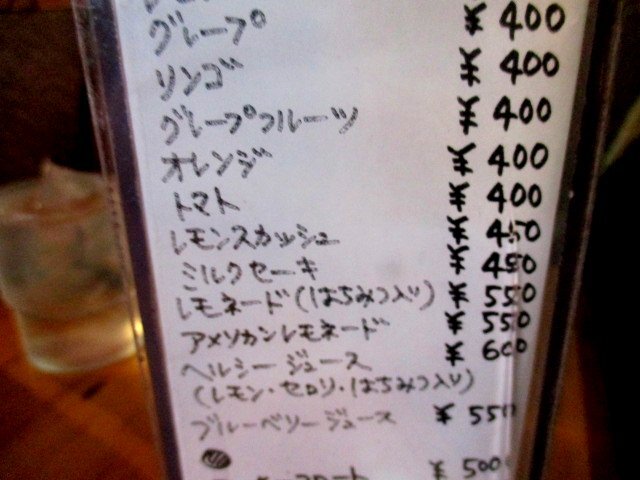 グレープ ¥400
リンゴ ¥400
グレープフルーツ ¥400
オレンジ ¥400
トマト ¥400
レモンスカッシュ ¥450
ミルクセーキ ¥450
レモネード(はちみつ入り) ¥550
アメリカンレモネード ¥550
ヘルシージュース ¥600
(レモン・セロリ・はちみつ入り)
ブルーベリージュース ¥550
¥500